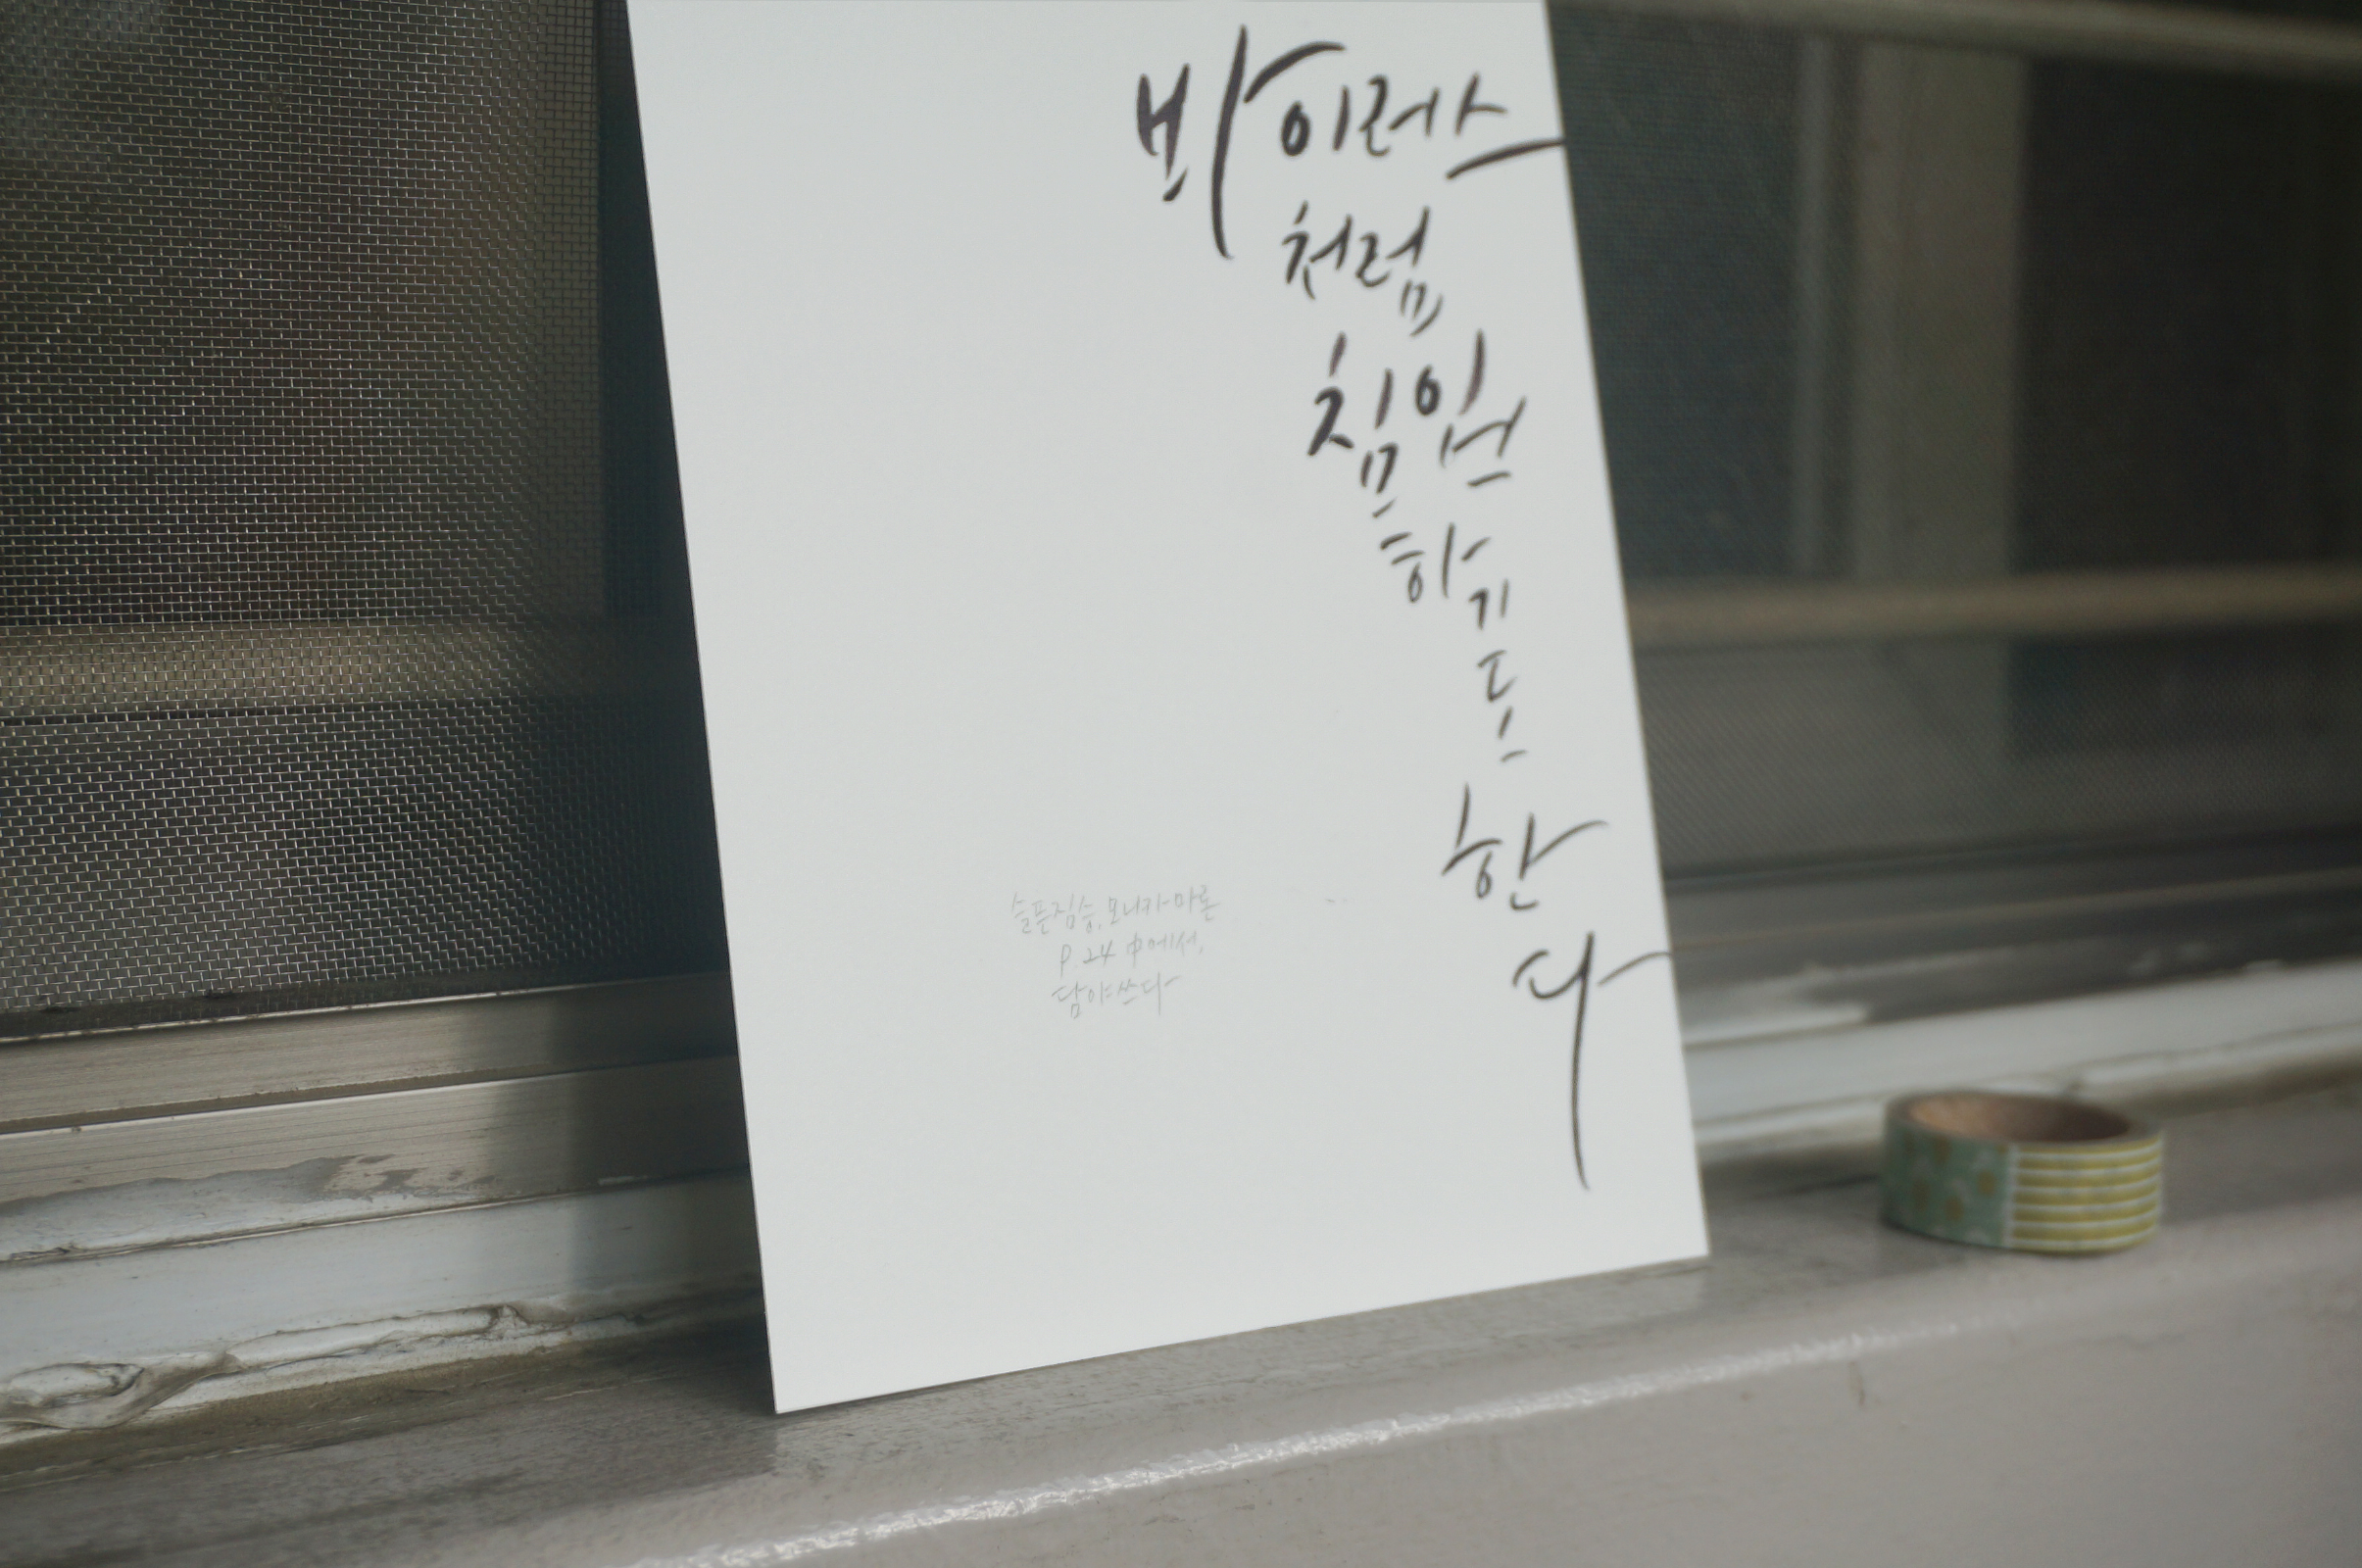 바이러스
처럼
침입
하
기
도
한
다
슬픈짐승, 모니카마론
P.24 中에서,
담아쓰다